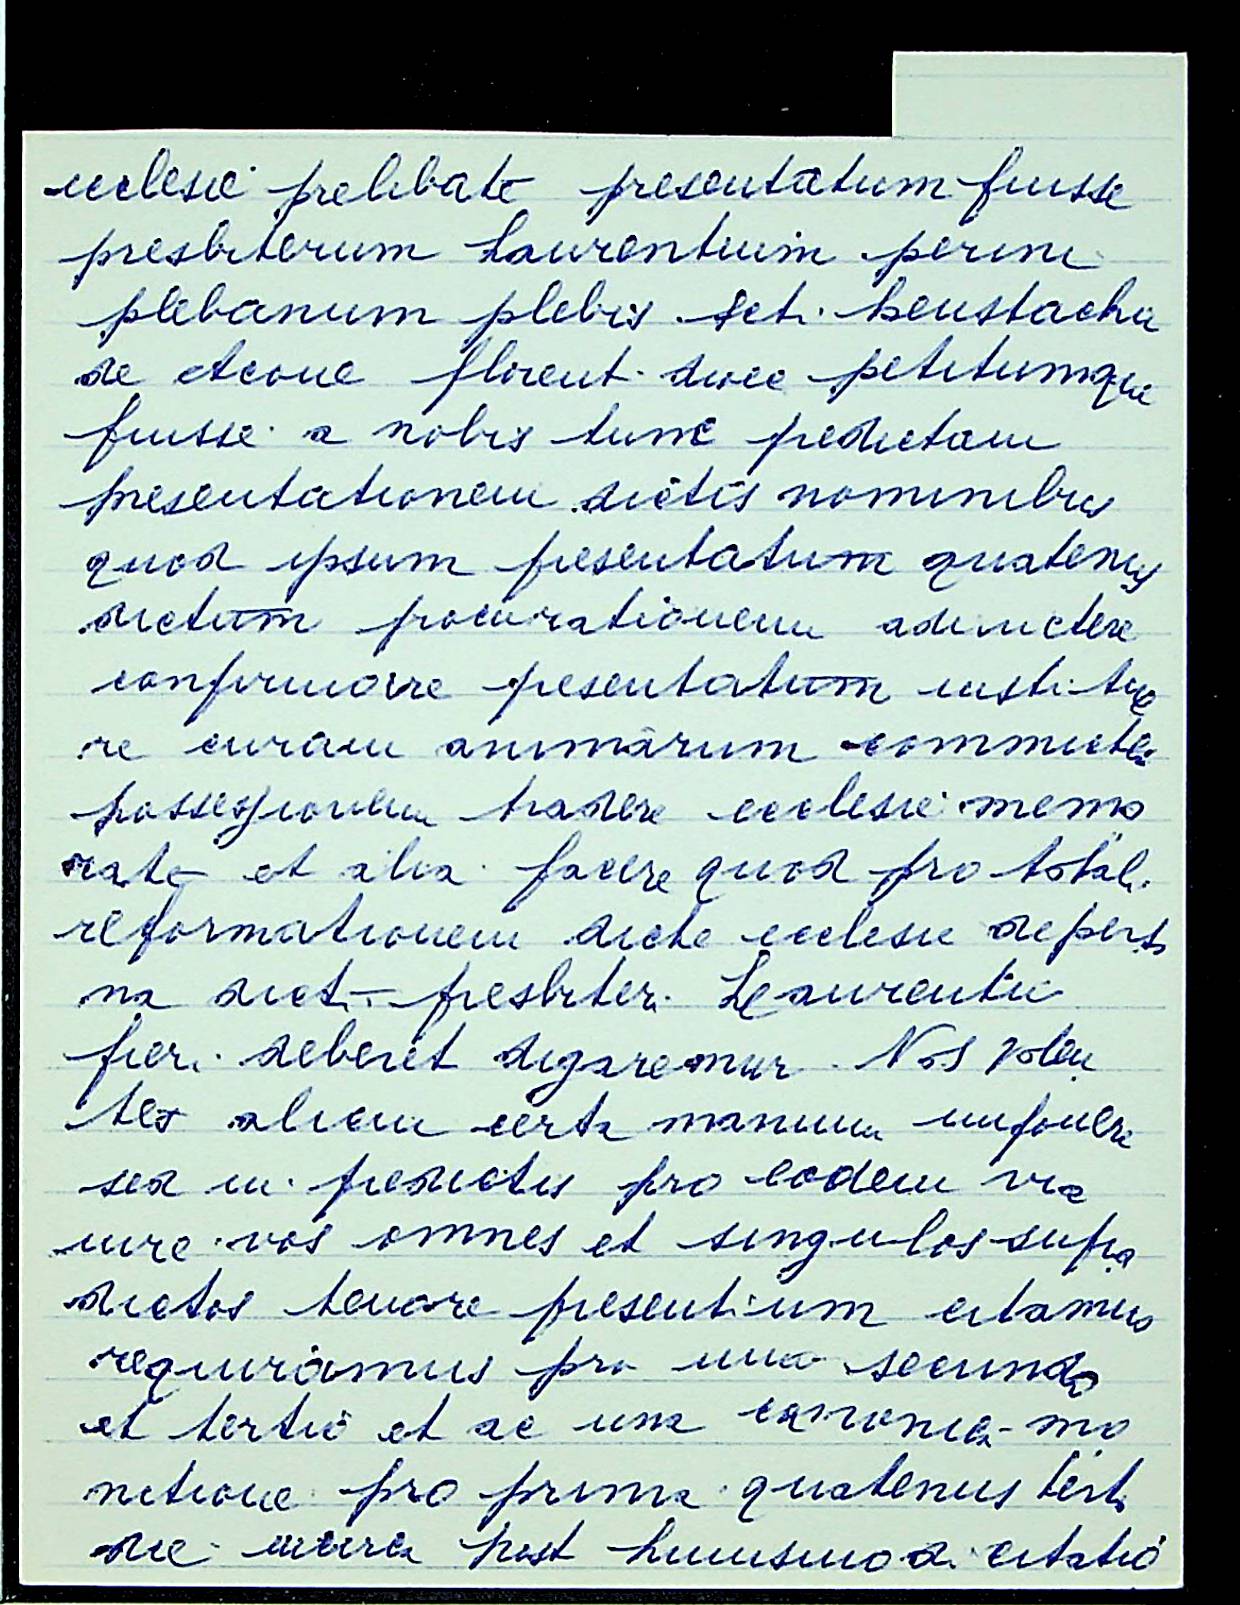 ecclesie prelibate presentatum fuisse
presbiterum Laurentium perini
plebanum plebis Scti. heustachii
de Acone florent. dioce petitumque
fuisse a nobis tunc predictam
presentationem dictis nominibus
quod ipsum presentatum quatenus
dictum procurationem admictere
confirmare presentatum institue
re curam animarum commictere
possessionem tradere ecclesie memo
rate et alia facere quod pro totali
reformationem dicte ecclesie de perso
na dicti presbiteri Laurentii
fieri deberet dignaremur Nos volen
tes alicui certa manum imponere
sed in predictis pro eodem via
iure vos omnes et singulos supra
dictos tenore presentium citamus
requiramus pro uno secundo
et tertio et ac una canonica mo
nitione pro prima quatenus terti
die iuiree post huiusmodi citatio